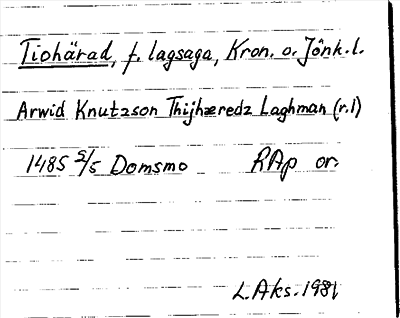 Tiohärad, f. lagsaga, Kron. o. Jönk. l.
Arwid Knutzson Thijhæredz Laghman (r.1)
1485 2/5 Domsmo RAp or.
L. Aks. 1981